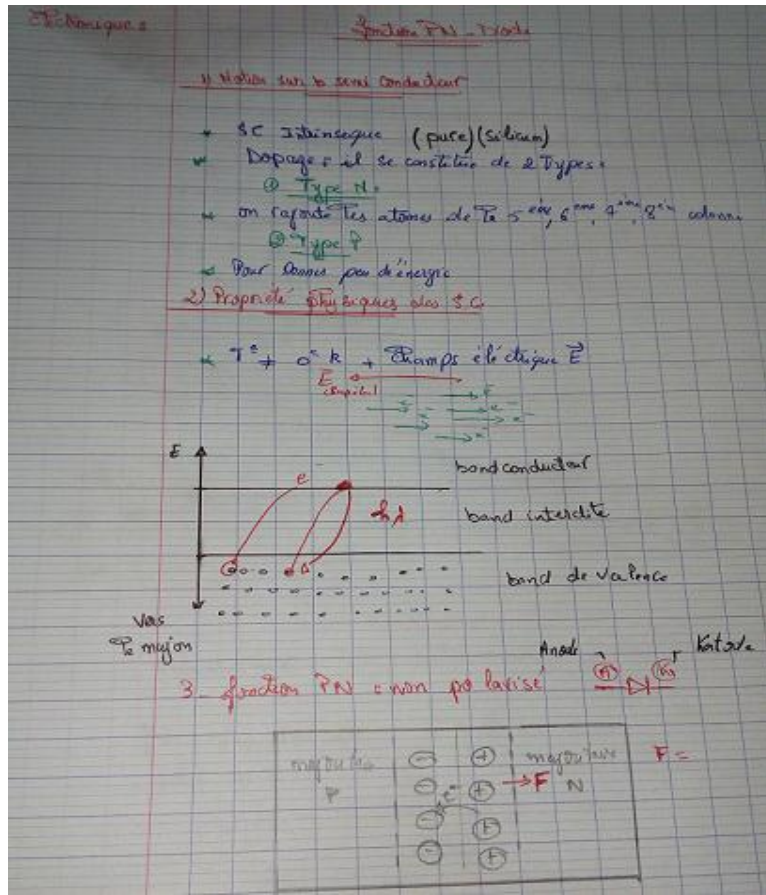 Jonction PN - Diode
1) Notion sur b semi Conducteur
SC Intrinseque (pure) (Silicium)
Dopage : il se constitue de 2 Types :
① Type N :
on rajoute les atomes de la 5 eme, 6 eme, 7 eme, 8 eme colonne
② Type P
Pour Donner peu d'énergie
2) Propriété physiques des S.C
T° + 0° k + Champs éléctrique E
E
E
band conducteur
e
hλ
band interdite
band de Valence
Vers
Anode
3 Jonction PN : non polarisé
majoritaire
P
majoritaire
N
F
e-
F =